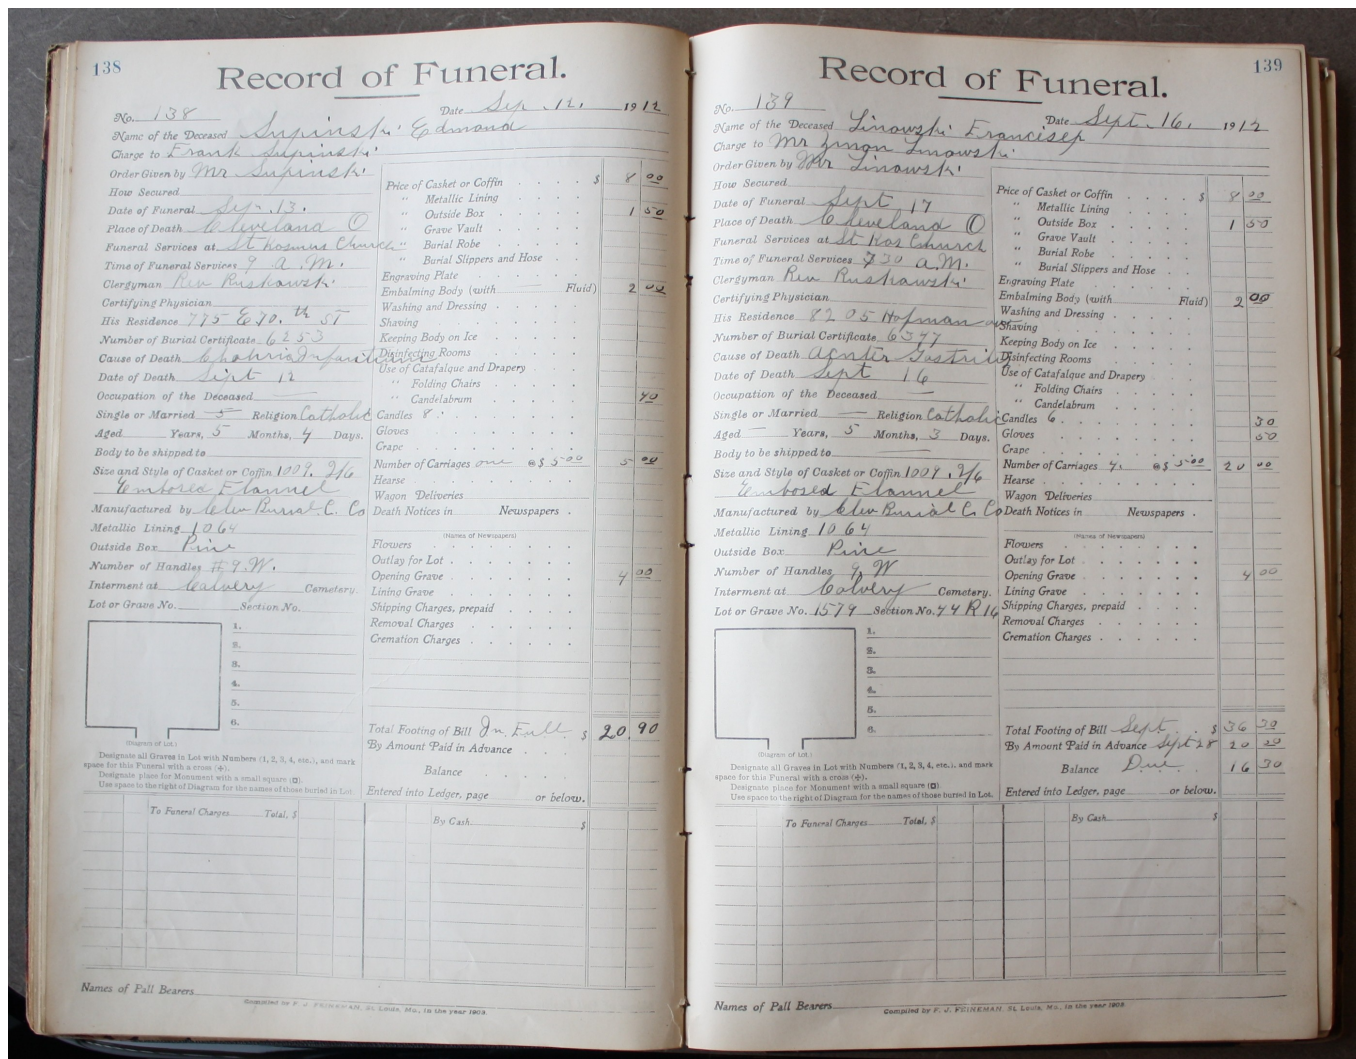 138
Record of Funeral.
No. 138 Date Sep. 12. 1912
Name of the Deceased Supinski Edmond
Charge to Frank Supinski
Order Given by Mr Supinski
How Secured
Date of Funeral Sep. 13.
Place of Death Cleveland O
Funeral Services at St Kosmus Church
Time of Funeral Services 9 A.M.
Clergyman Rev Ruskowski
Certifying Physician
His Residence 775 E 70.th ST
Number of Burial Certificate 6253
Cause of Death
Date of Death Sept 12
Occupation of the Deceased
Single or Married S Religion Catholic
Aged Years, 5 Months, 4 Days.
Body to be shipped to
Size and Style of Casket or Coffin 1009. 2/6
Embosed Flannel
Manufactured by Clev Burial C. Co
Metallic Lining 1064
Outside Box Pine
Number of Handles #9.W.
Interment at Calvery Cemetery.
Lot or Grave No. Section No.
1.
2.
3.
4.
5.
6.
(Diagram of Lot.)
Designate all Graves in Lot with Numbers (1, 2, 3, 4, etc.), and mark
space for this Funeral with a cross (+).
Designate place for Monument with a small square (□).
Use space to the right of Diagram for the names of those buried in Lot.
Price of Casket or Coffin $ 8 00
" Metallic Lining
" Outside Box 1 50
" Grave Vault
" Burial Robe
" Burial Slippers and Hose
Engraving Plate
Embalming Body (with Fluid) 2 00
Washing and Dressing
Shaving
Keeping Body on Ice
Disinfecting Rooms
Use of Catafalque and Drapery
" Folding Chairs
" Candelabrum 40
Candles 8
Gloves
Crape
Number of Carriages one @ $ 5.00 5 00
Hearse
Wagon Deliveries
Death Notices in Newspapers
(Names of Newspapers)
Flowers
Outlay for Lot
Opening Grave 4 00
Lining Grave
Shipping Charges, prepaid
Removal Charges
Cremation Charges
Total Footing of Bill In Full $ 20.90
By Amount Paid in Advance
Balance
Entered into Ledger, page or below.
To Funeral Charges Total, $ By Cash $
Names of Pall Bearers
Compiled by F. J. FEINEMAN, St. Louis, Mo., in the year 1903.
139
Record of Funeral.
No. 139 Date Sept. 16. 1912
Name of the Deceased Linowski Francisep
Charge to Mr Linowski
Order Given by Mr Linowski
How Secured
Date of Funeral Sept 17
Place of Death Cleveland O
Funeral Services at St Kas Church
Time of Funeral Services 730 A.M.
Clergyman Rev Ruskowski
Certifying Physician
His Residence 8205 Hofman av
Number of Burial Certificate 6377
Cause of Death Gastritis
Date of Death Sept 16
Occupation of the Deceased
Single or Married Religion Catholic
Aged Years, 5 Months, 3 Days.
Body to be shipped to
Size and Style of Casket or Coffin 1009. 2/6
Embosed Flannel
Manufactured by Clev Burial C. Co
Metallic Lining 1064
Outside Box Pine
Number of Handles 9. W
Interment at Calvery Cemetery.
Lot or Grave No. 1579 Section No. 44 R 16
1.
2.
3.
4.
5.
6.
(Diagram of Lot.)
Designate all Graves in Lot with Numbers (1, 2, 3, 4, etc.), and mark
space for this Funeral with a cross (+).
Designate place for Monument with a small square (□).
Use space to the right of Diagram for the names of those buried in Lot.
Price of Casket or Coffin $ 8 00
" Metallic Lining
" Outside Box 1 50
" Grave Vault
" Burial Robe
" Burial Slippers and Hose
Engraving Plate
Embalming Body (with Fluid) 2 00
Washing and Dressing
Shaving
Keeping Body on Ice
Disinfecting Rooms
Use of Catafalque and Drapery
" Folding Chairs
" Candelabrum
Candles 6 30
Gloves 50
Crape
Number of Carriages 4. @ $ 5.00 20 00
Hearse
Wagon Deliveries
Death Notices in Newspapers
(Names of Newspapers)
Flowers
Outlay for Lot
Opening Grave 4 00
Lining Grave
Shipping Charges, prepaid
Removal Charges
Cremation Charges
Total Footing of Bill Sept $ 36 30
By Amount Paid in Advance Sept 28 20 00
Balance Due 16 30
Entered into Ledger, page or below.
To Funeral Charges Total, $ By Cash $
Names of Pall Bearers
Compiled by F. J. FEINEMAN, St. Louis, Mo., in the year 1903.